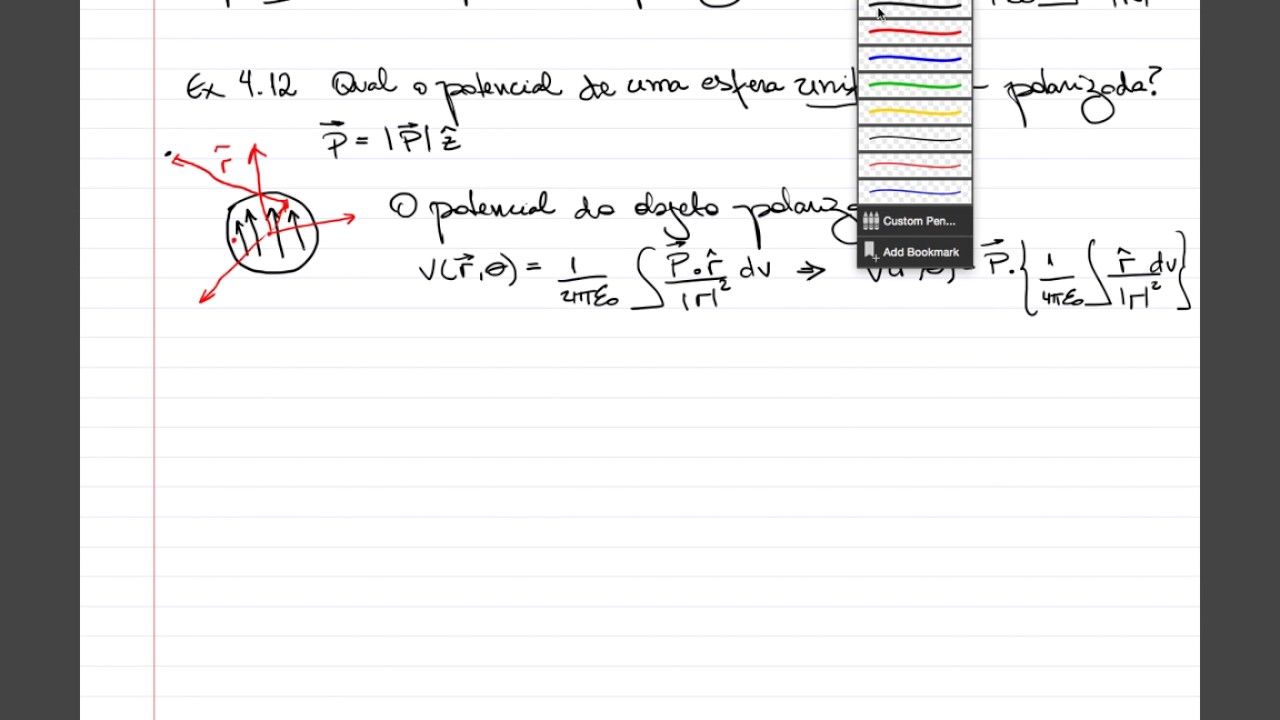 Ex 4.12 Qual o potencial de uma esfera polarizada?
P⃗ = |P⃗| ẑ
r⃗
O potencial do objeto
V(r⃗,θ) = 1/4πε₀ ∫ P⃗·r̂/|r|² dv ⇒ P⃗·{1/4πε₀ ∫ r̂ dv/|r|²}
Custom Pen...
Add Bookmark